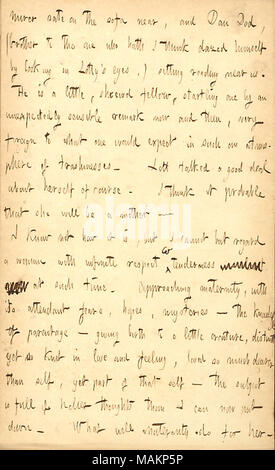 mercer sate on the sofa near, and Dan Dod,
(brother to the one who hath I think dazed himself
by looking in Lotty's eyes,) sitting reading near us.
He is a little, shrewd fellow, startling one by an
unexpectedly sensible remark now and then, very
foreign to what one would expect in such an atmos-
phere of trashinesses — Lotty talked a good deal
about herself of course. I think it probable
that she will be a mother —
I know not how it is, but I cannot but regard
a woman with infinite respect & tenderness
at such time. Approaching maternity, with
its attendant fears, hopes, mysteries — the kindly
of parentage — giving birth to a little creature, distinct
yet so knit in love and feeling, loved so much dearer
than self, yet part of that self — the subject
is full of holier thoughts than I can now put
down — What will maternity do for her —
alamy
Image ID: MAKP5P
www.alamy.com